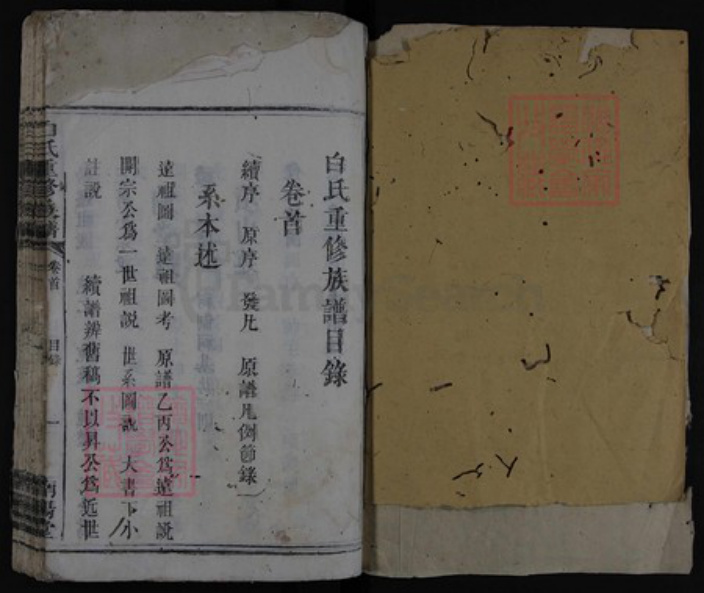 白氏重修族譜目錄
卷首
續序 原序 發凡 原譜凡例節錄
系本述
遠祖圖 遠祖圖考 原譜乙丙公爲遠祖說
開宗公爲一世祖說 世系圖說 大書下小
註說 續譜辨舊稿不以昇公爲近世
白氏重修族譜 卷首 目錄 一
FamilySearch